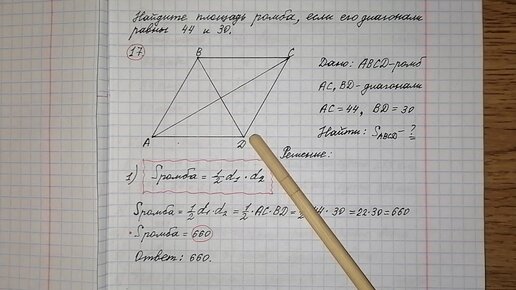 Найдите площадь ромба, если его диагонали
равны 44 и 30.
17
B C
A D
Дано: ABCD-ромб
AC, BD - диагонали
AC = 44, BD = 30
Найти: S_ABCD - ?
Решение:
1) Sромба = 1/2 d₁ · d₂
Sромба = 1/2 d₁ · d₂ = 1/2 · AC · BD = 44 · 30 = 22 · 30 = 660
Sромба = 660
Ответ: 660.